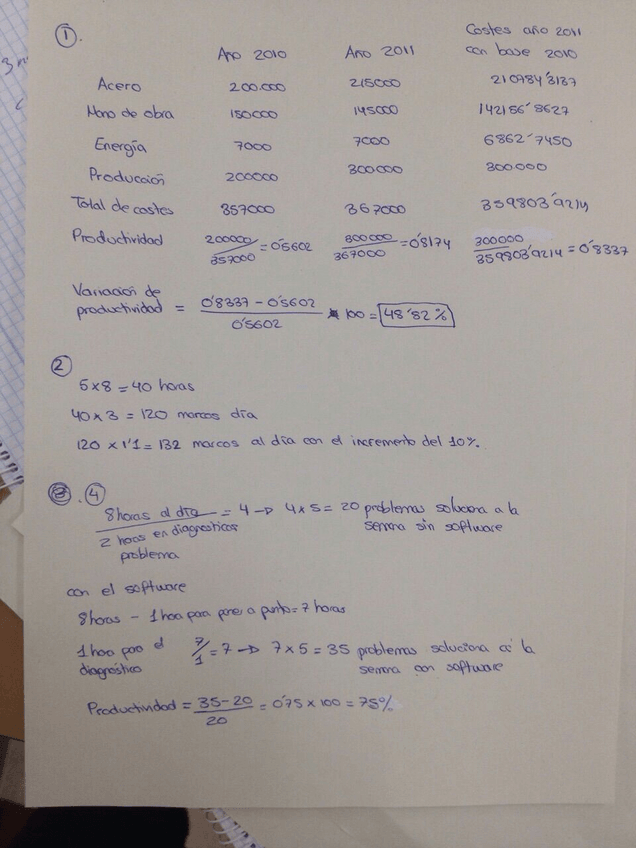 ①.
Año 2010 Año 2011 Costes año 2011 con base 2010
Acero 200.000 215000 210784'3137
Mano de obra 150000 145000 142156'8627
Energía 7000 7000 6862'7450
Producción 200000 300000 300.000
Total de costes 357000 367000 359803'9214
Productividad 200000/357000 = 0'5602 300000/367000 = 0'8174 300000/359803'9214 = 0'8337
Variación de productividad = 0'8337 - 0'5602 / 0'5602 * 100 = 48'82%
②
5 x 8 = 40 horas
40 x 3 = 120 marcos día
120 x 1'1 = 132 marcos al día con el incremento del 10%.
④
8 horas al día / 2 horas en diagnosticar problema = 4 → 4 x 5 = 20 problemas soluciona a la semana sin software
con el software
8 horas - 1 hora para poner a punto = 7 horas
1 hora para el diagnóstico 7/1 = 7 → 7 x 5 = 35 problemas soluciona a la semana con software
Productividad = 35-20 / 20 = 0'75 x 100 = 75%